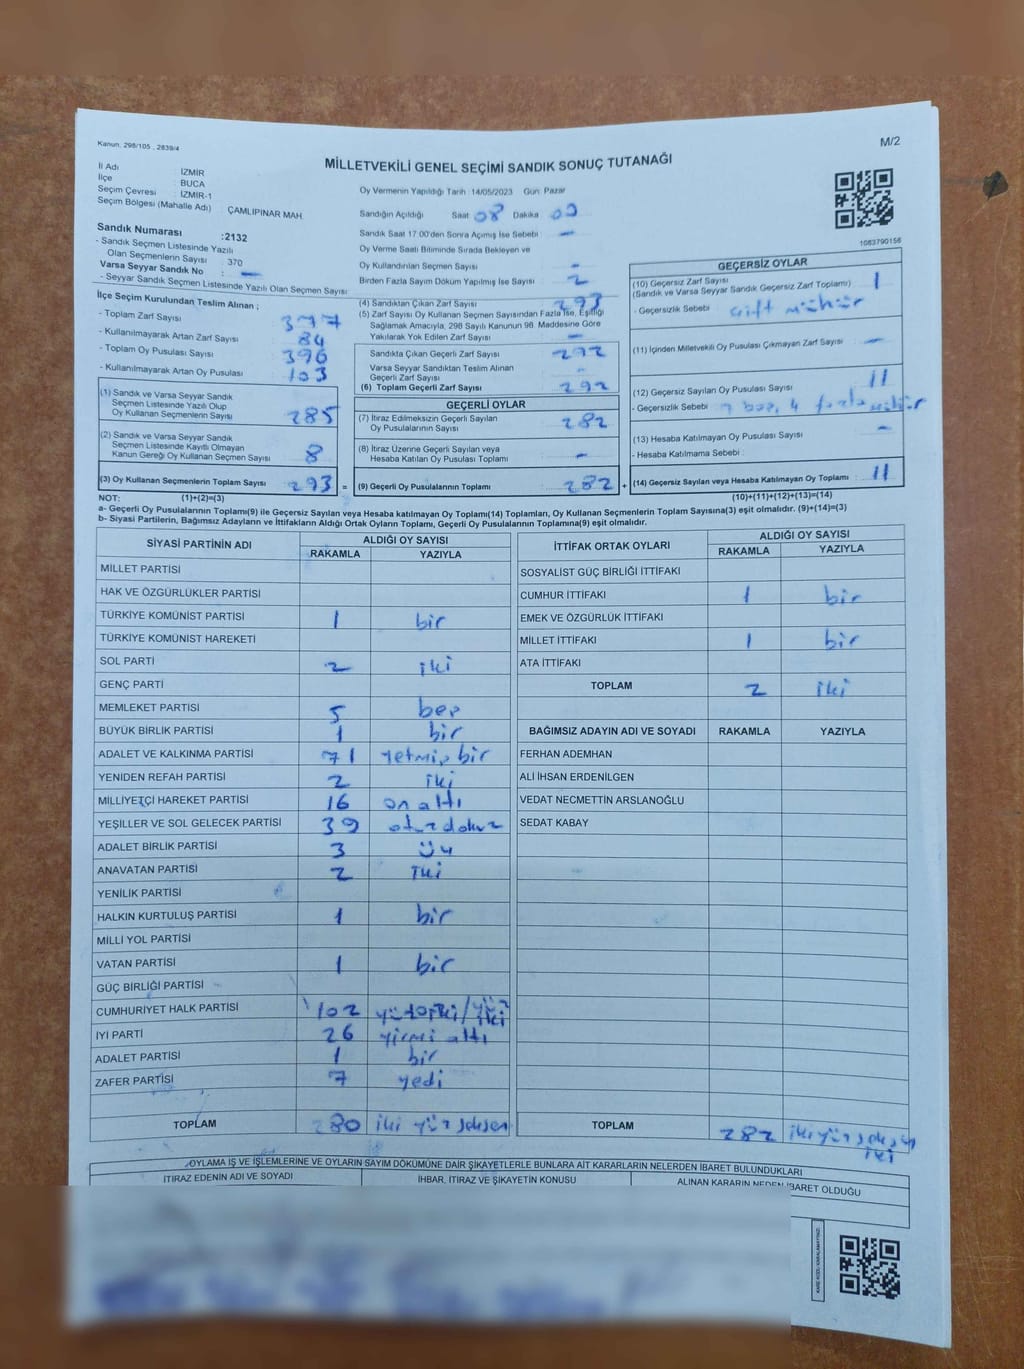 Kanun, 298/105 , 2839/4
M/2
MİLLETVEKİLİ GENEL SEÇİMİ SANDIK SONUÇ TUTANAĞI
İl Adı İZMİR
İlçe : BUCA
Seçim Çevresi : İZMİR-1
Seçim Bölgesi (Mahalle Adı) : ÇAMLIPINAR MAH.
Sandık Numarası :2132
- Sandık Seçmen Listesinde Yazılı
Olan Seçmenlerin Sayısı 370
Varsa Seyyar Sandık No : -
- Seyyar Sandık Seçmen Listesinde Yazılı Olan Seçmen Sayısı
Oy Vermenin Yapıldığı Tarih :14/05/2023 Gün: Pazar
Sandığın Açıldığı Saat 08 Dakika 00
Sandık Saat 17:00'den Sonra Açımış İse Sebebi -
Oy Verme Saati Bitiminde Sırada Bekleyen ve
Oy Kullandırılan Seçmen Sayısı -
Birden Fazla Sayım Döküm Yapılmış İse Sayısı 2
1083790156
İlçe Seçim Kurulundan Teslim Alınan ;
- Toplam Zarf Sayısı 377
- Kullanılmayarak Artan Zarf Sayısı 84
- Toplam Oy Pusulası Sayısı 396
- Kullanılmayarak Artan Oy Pusulası 103
(1) Sandık ve Varsa Seyyar Sandık
Seçmen Listesinde Yazılı Olup
Oy Kullanan Seçmenlerin Sayısı 285
(2) Sandık ve Varsa Seyyar Sandık
Seçmen Listesinde Kayıtlı Olmayan
Kanun Gereği Oy Kullanan Seçmen Sayısı 8
(3) Oy Kullanan Seçmenlerin Toplam Sayısı 293 =
(4) Sandıktan Çıkan Zarf Sayısı 293
(5) Zarf Sayısı Oy Kullanan Seçmen Sayısından Fazla İse, Eşitliği
Sağlamak Amacıyla, 298 Sayılı Kanunun 98. Maddesine Göre
Yakılarak Yok Edilen Zarf Sayısı -
Sandıkta Çıkan Geçerli Zarf Sayısı 292
Varsa Seyyar Sandıktan Teslim Alınan
Geçerli Zarf Sayısı
(6) Toplam Geçerli Zarf Sayısı 292
GEÇERLİ OYLAR
(7) İtiraz Edilmeksizin Geçerli Sayılan
Oy Pusulalarının Sayısı 282
(8) İtiraz Üzerine Geçerli Sayılan veya
Hesaba Katılan Oy Pusulası Toplamı -
(9) Geçerli Oy Pusulalarının Toplamı 282 +
GEÇERSİZ OYLAR
(10) Geçersiz Zarf Sayısı 1
(Sandık ve Varsa Seyyar Sandık Geçersiz Zarf Toplamı)
- Geçersizlik Sebebi : çift mühür
(11) İçinden Milletvekili Oy Pusulası Çıkmayan Zarf Sayısı -
(12) Geçersiz Sayılan Oy Pusulası Sayısı 11
- Geçersizlik Sebebi 7 boş, 4 fazla mühür
(13) Hesaba Katılmayan Oy Pusulası Sayısı -
- Hesaba Katılmama Sebebi :
(14) Geçersiz Sayılan veya Hesaba Katılmayan Oy Toplamı 11
NOT: (1)+(2)=(3) (10)+(11)+(12)+(13)=(14)
a- Geçerli Oy Pusulalarının Toplamı(9) ile Geçersiz Sayılan veya Hesaba katılmayan Oy Toplamı(14) Toplamları, Oy Kullanan Seçmenlerin Toplam Sayısına(3) eşit olmalıdır. (9)+(14)=(3)
b- Siyasi Partilerin, Bağımsız Adayların ve İttifakların Aldığı Ortak Oyların Toplamı, Geçerli Oy Pusulalarının Toplamına(9) eşit olmalıdır.
SİYASİ PARTİNİN ADI ALDIĞI OY SAYISI
RAKAMLA YAZIYLA
MİLLET PARTİSİ
HAK VE ÖZGÜRLÜKLER PARTİSİ
TÜRKİYE KOMÜNİST PARTİSİ 1 bir
TÜRKİYE KOMÜNİST HAREKETİ
SOL PARTİ 2 iki
GENÇ PARTİ
MEMLEKET PARTİSİ 5 beş
BÜYÜK BİRLİK PARTİSİ 1 bir
ADALET VE KALKINMA PARTİSİ 71 yetmiş bir
YENİDEN REFAH PARTİSİ 2 iki
MİLLİYETÇİ HAREKET PARTİSİ 16 on altı
YEŞİLLER VE SOL GELECEK PARTİSİ 39 otuz dokuz
ADALET BİRLİK PARTİSİ 3 üç
ANAVATAN PARTİSİ 2 iki
YENİLİK PARTİSİ
HALKIN KURTULUŞ PARTİSİ 1 bir
MİLLİ YOL PARTİSİ
VATAN PARTİSİ 1 bir
GÜÇ BİRLİĞİ PARTİSİ
CUMHURİYET HALK PARTİSİ 102 / yüz iki
İYİ PARTİ 26 yirmi altı
ADALET PARTİSİ 1 bir
ZAFER PARTİSİ 7 yedi
TOPLAM 280 iki yüz seksen
İTTİFAK ORTAK OYLARI ALDIĞI OY SAYISI
RAKAMLA YAZIYLA
SOSYALİST GÜÇ BİRLİĞİ İTTİFAKI
CUMHUR İTTİFAKI 1 bir
EMEK VE ÖZGÜRLÜK İTTİFAKI
MİLLET İTTİFAKI 1 bir
ATA İTTİFAKI
TOPLAM 2 iki
BAĞIMSIZ ADAYIN ADI VE SOYADI RAKAMLA YAZIYLA
FERHAN ADEMHAN
ALİ İHSAN ERDENİLGEN
VEDAT NECMETTİN ARSLANOĞLU
SEDAT KABAY
TOPLAM 282 iki yüz seksen iki
OYLAMA İŞ VE İŞLEMLERİNE VE OYLARIN SAYIM DÖKÜMÜNE DAİR ŞİKAYETLERLE BUNLARA AİT KARARLARIN NELERDEN İBARET BULUNDUKLARI
İTİRAZ EDENİN ADI VE SOYADI İHBAR, İTİRAZ VE ŞİKAYETİN KONUSU ALINAN KARARIN NEDEN İBARET OLDUĞU